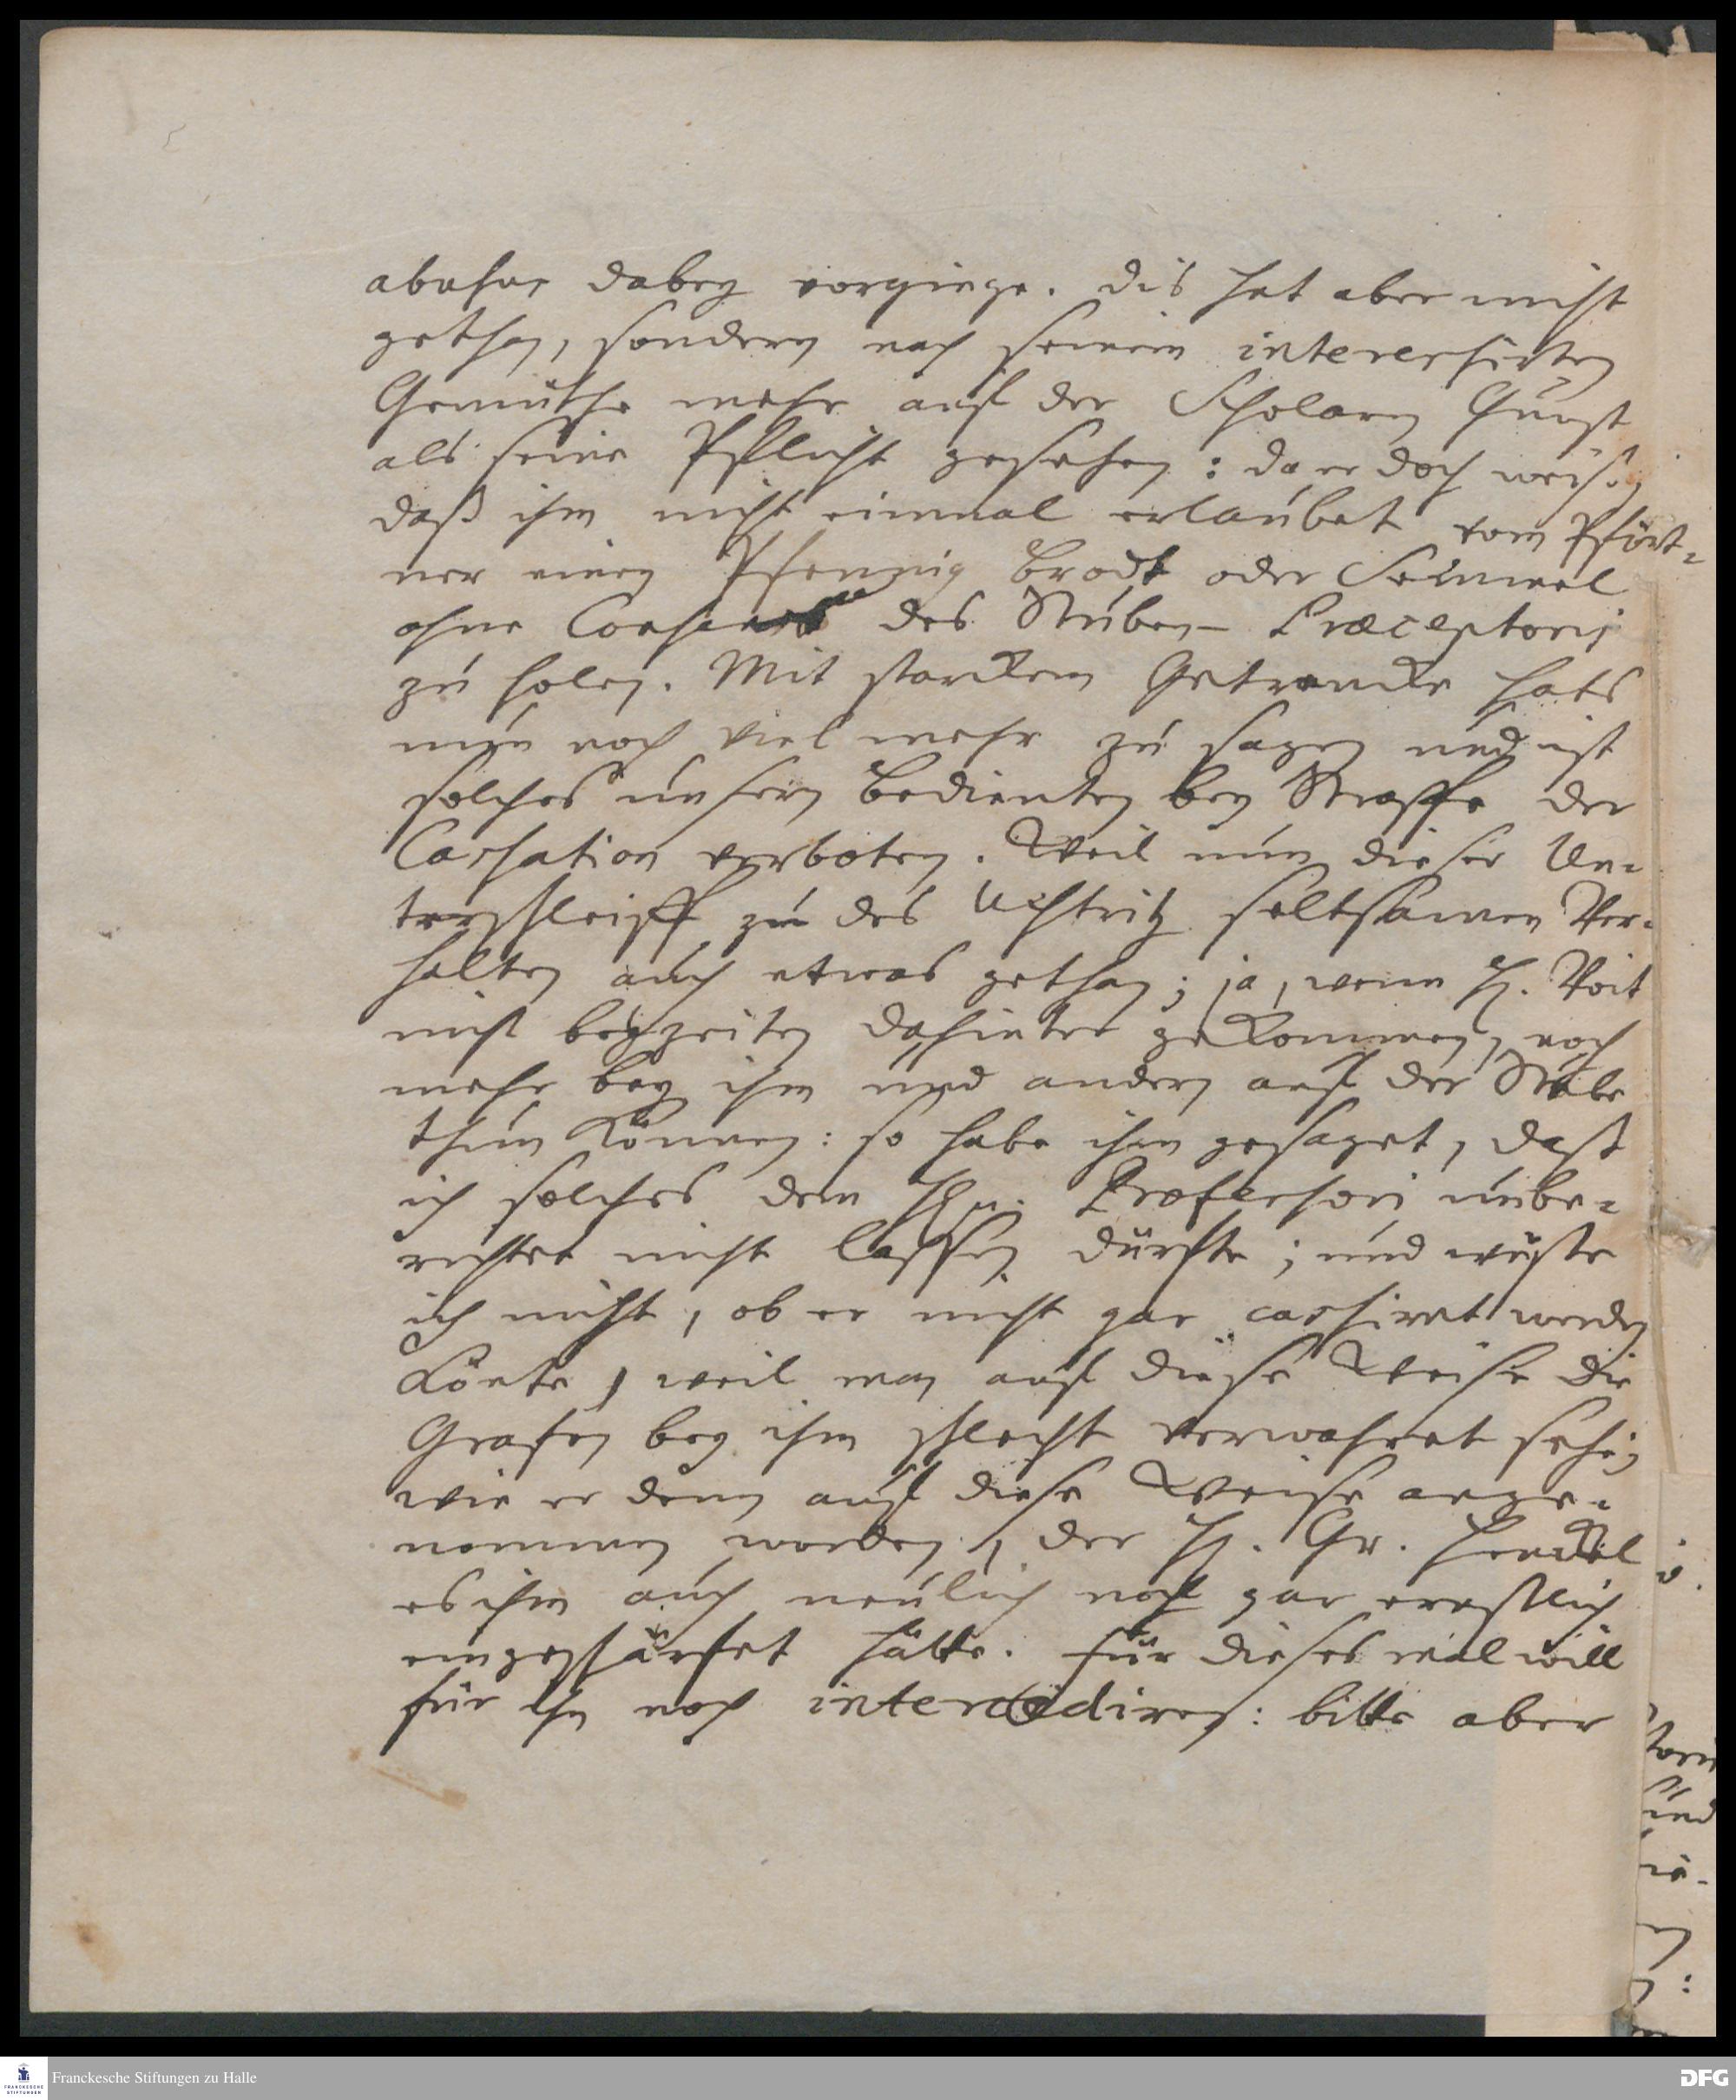 abusus dabey vorginge. Dis hat aber nicht
gethan, sondern nach seinem interessirten
Gemüthe mehr auf der Scholaren Gunst
als seine Pflicht gesehen: da er doch weiß,
daß ihm nicht einmal erlaubet vom Pfört-
ner einen Pfennig Brodt oder Semmel
ohne Consens des Stuben-Præceptoris
zu holen. Mit starckem Getrancke hats
nun noch viel mehr zu sagen und ist
solches unsern Bedienten bey Straffe der
Cassation verboten. Weil nun dieser Un-
terschleiff zu des Uchtritz seltsamen Ver-
halten auch etwas gethan; ja, wenn H. Voit
nicht beyzeiten dahinter gekommen, noch
mehr bey ihm und andern auf der Stube
thun können: so habe ihm gesaget, daß
ich solches dem Hn. Professori unbe-
richtet nicht lassen dürfte; und wüste
ich nicht, ob er nicht gar cassiret werden
könte, weil man auf diese Weise die
Grafen bey ihm schlecht verwahret sehe,
wie er denn auf diese Weise ange-
nommen worden, der H. Gr. Henckel
es ihm auch neulich noch gar ernstlich
eingeschärfet hätte. Für dieses mal will
für ihn noch intercediren: bitte aber
Franckesche Stiftungen zu Halle
FRANCKESCHE
STIFTUNGEN
DFG